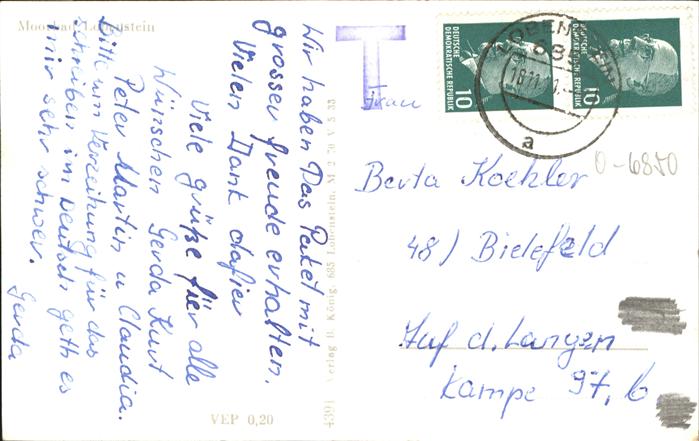 Moorbad Lobenstein
Wir haben Das Paket mit
grosser freude erhalten.
Vielen Dank dafier
Viele grüße fier alle
Wünschen Gerda Kurt
Peter Martin u Claudia.
Bitte um Verzeihung für das
schreiben im Deutsch geth es
mir sehr schwer.
Gerda
VEP 0,20
4391 Verlag R. König, 685 Lobenstein, M 2 70 V 5 33
T
DEUTSCHE
DEMOKRATISCHE REPUBLIK
10
DEUTSCHE
DEMOKRATISCHE REPUBLIK
10
LOBENSTEIN
685
a
Frau
0-6850
Berta Koehler
48) Bielefeld
Auf d. Langen
Kampe 97, b